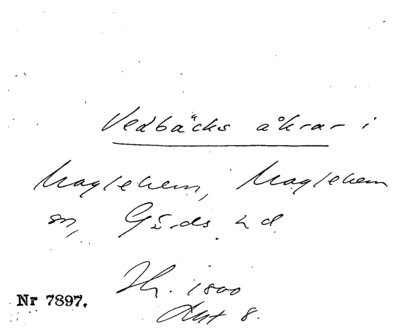 Vedbäcks åkrar i
Maglehem, Maglehem
sn, Gärds hd
Jh. 1800
Avt 8.
Nr 7897.